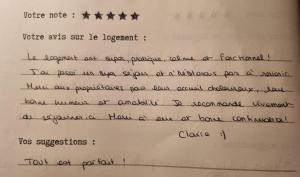 Votre note : ★★★★★
Votre avis sur le logement :
Le logement est super, pratique, calme et fonctionnel !
J'ai passé un super séjour et n'hésiterais pas à revenir.
Merci aux propriétaires pour leur accueil chaleureux, leur
bonne humeur et amabilité. Je recommande vivement
de séjourner ici. Merci à eux et bonne continuation !
Claire :)
Vos suggestions :
Tout est parfait !